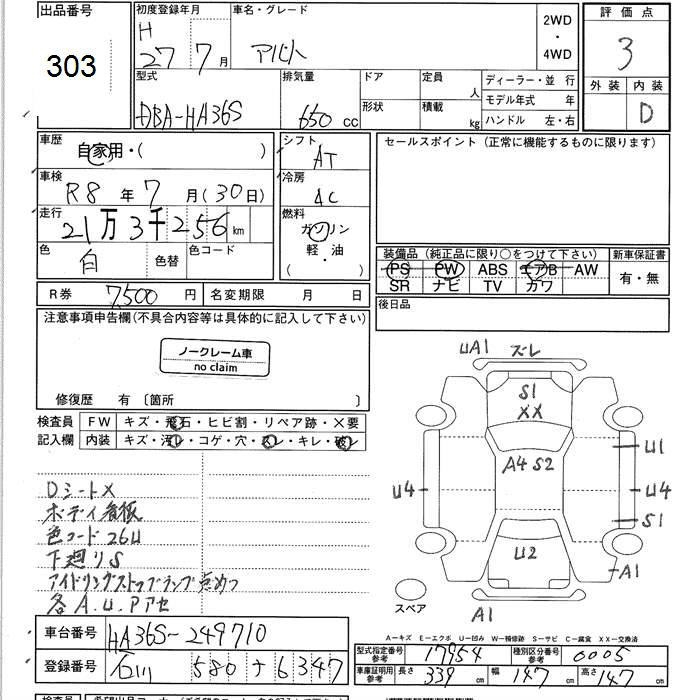 出品番号 初度登録年月 車名・グレード 2WD ・ 4WD 評価点
303 H 27 7月 アルト 3
型式 排気量 ドア 定員 人 ディーラー・並行 外装 内装
DBA-HA36S 650 cc 形状 積載 kg モデル年式 年 D
ハンドル 左・右
車歴 自家用・( ) シフト AT セールスポイント (正常に機能するものに限ります)
車検 R8年 7月 (30日) 冷房 AC
走行 21万3千256km 燃料 ガソリン
色 白 色替 色コード 軽・油
( )
装備品 (純正品に限り○をつけて下さい) 新車保証書
PS PW ABS エアB AW 有・無
SR ナビ TV カワ
R券 7,500円 名変期限 月 日 後日品
注意事項申告欄(不具合内容等は具体的に記入して下さい)
ノークレーム車
no claim
修復歴 有 〔箇所 〕
検査員 FW キズ・飛石・ヒビ割・リペア跡・×要
記入欄 内装 キズ・汚レ・コゲ・穴・スレ・キレ・破レ
UA1 ズレ
S1
XX
U1
A4 S2
U4 U4
S1
U2
A1
スペア A1
Dシート×
ボディ看板
色コード26U
下廻りS
アイドリングストップランプ点めつ
各A.U.Pアセ
A-キズ E-エクボ U-凹み W-補修跡 S-サビ C-腐食 XX-交換済
車台番号 HA36S-249710
型式指定番号 参考 17954 種別区分番号 参考 0005
登録番号 石川 580 す 6347
車庫証明用 参考 長さ 339cm 幅 147cm 高さ 147cm